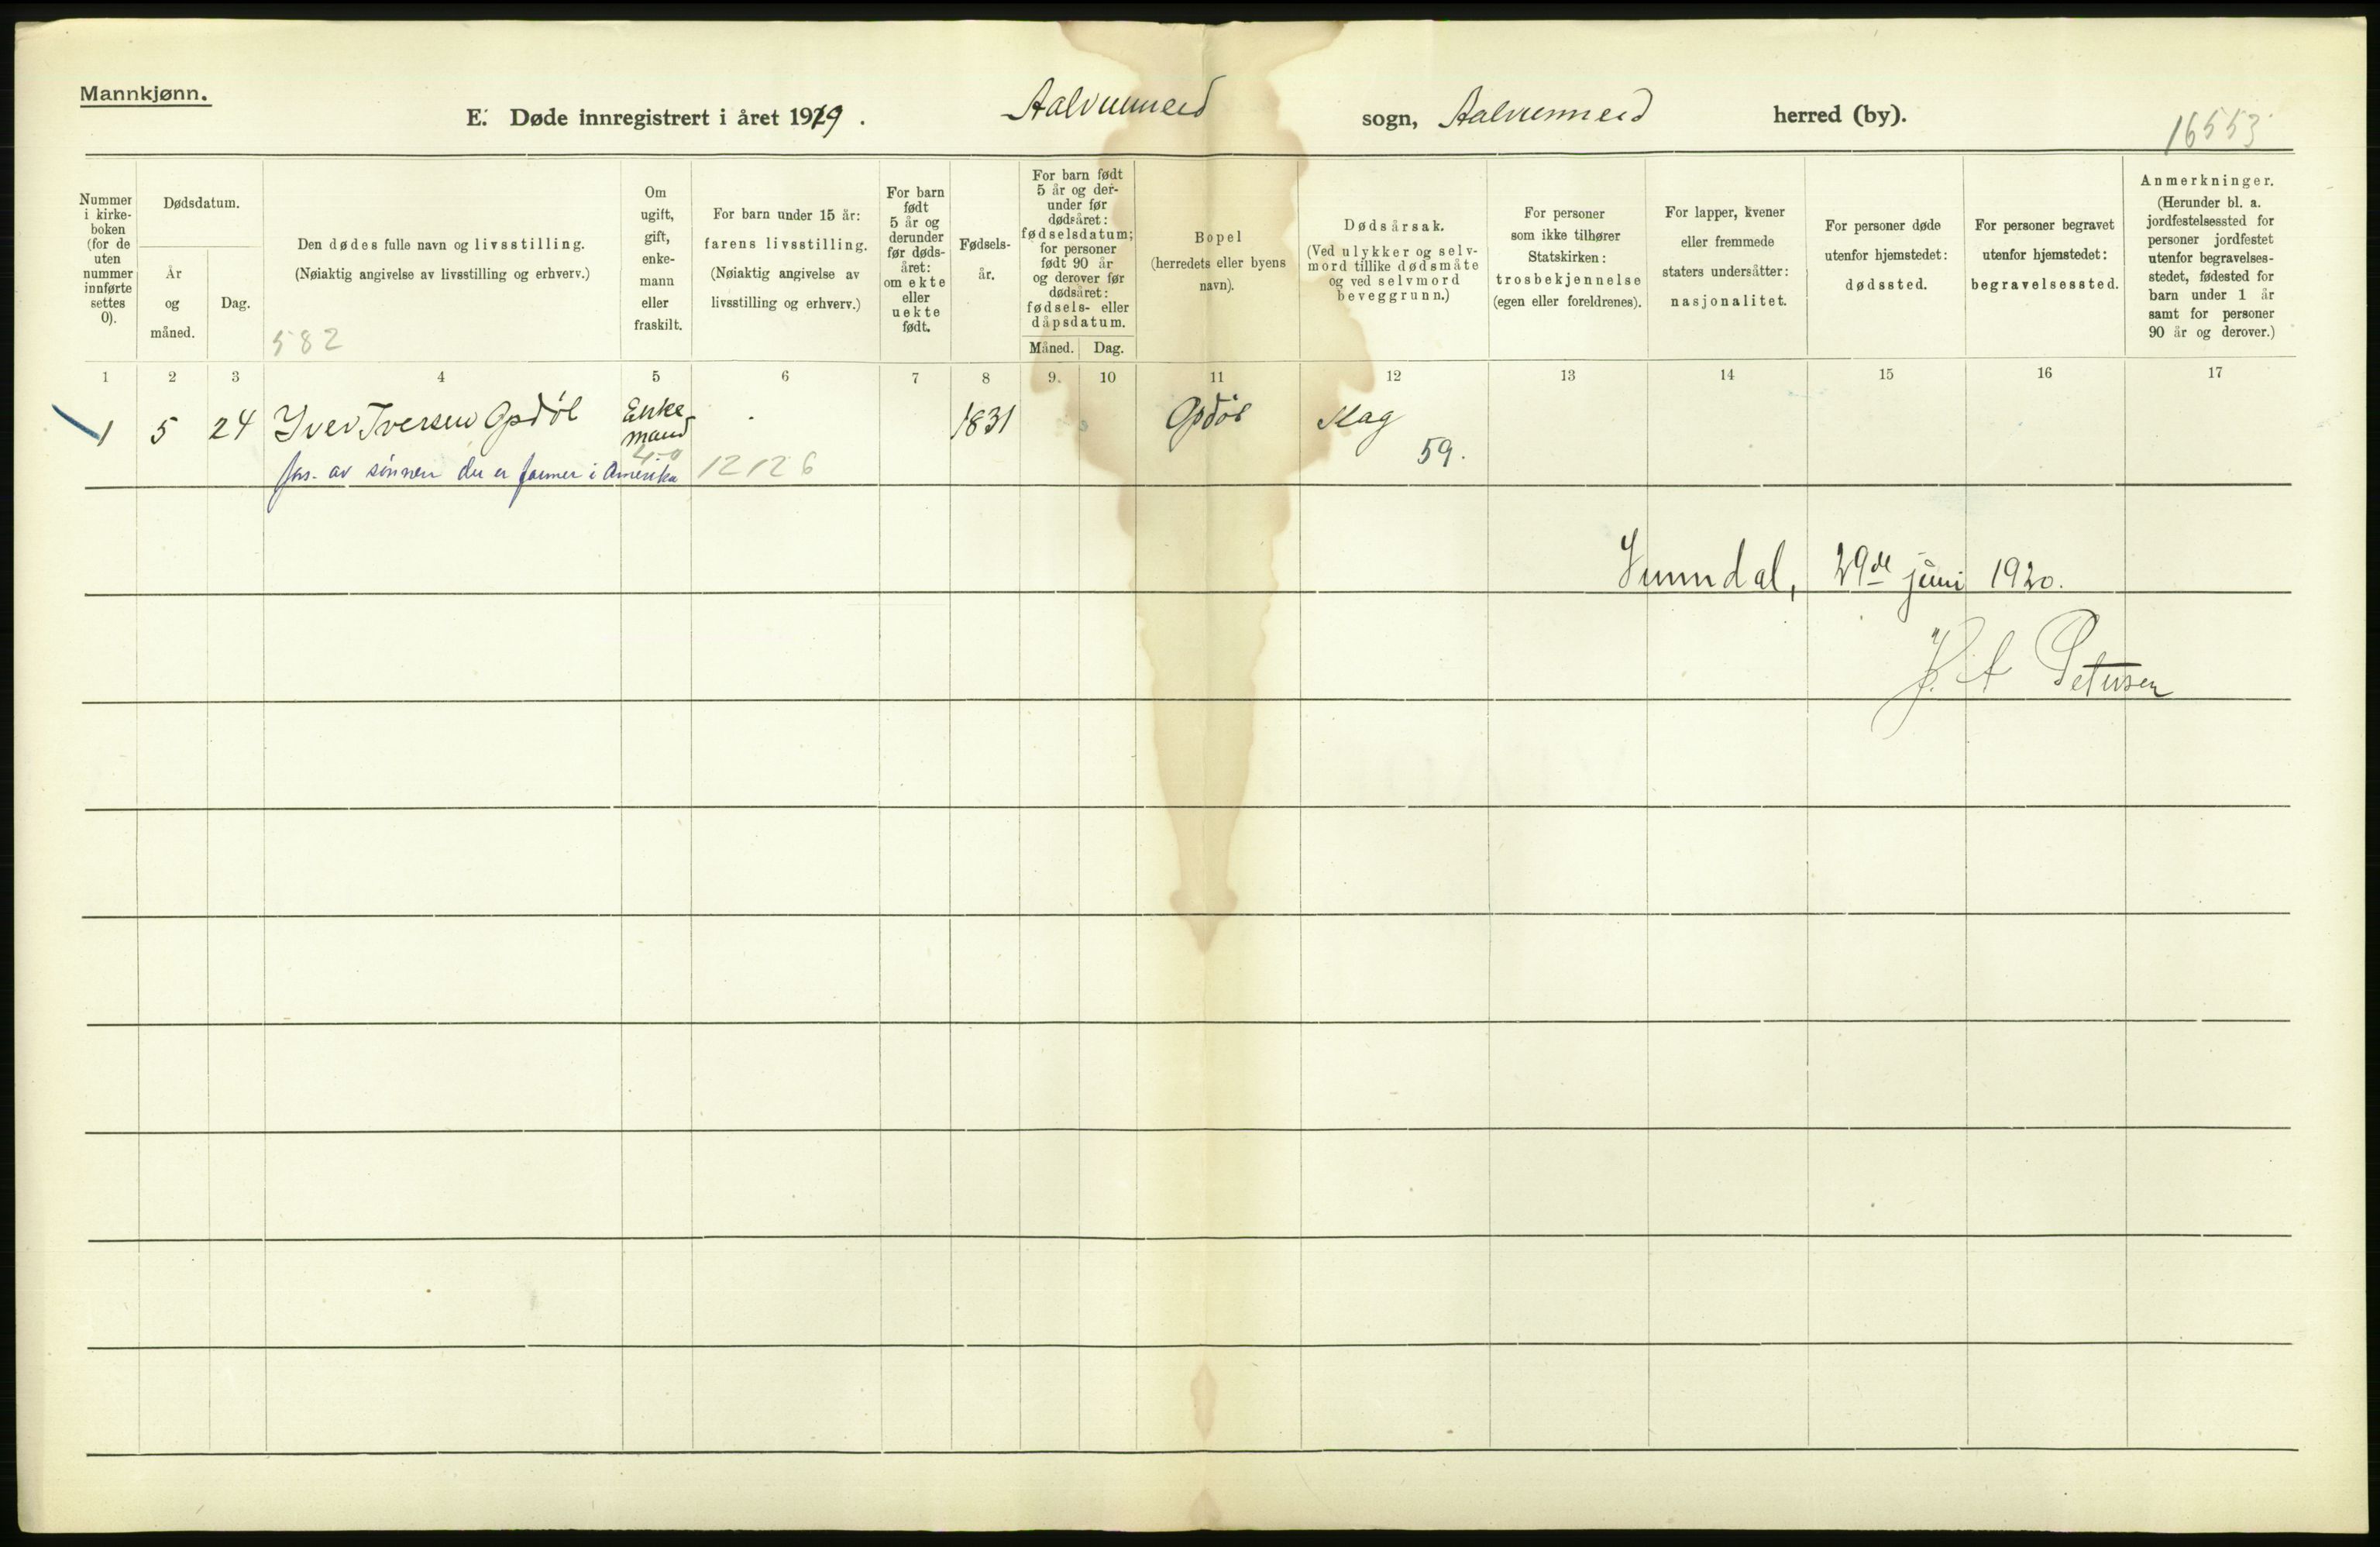 Mannkjønn.
E. Døde innregistrert i året 1919. Aalvundeid sogn, Aalvundeid herred (by).
16553
Nummer i kirke-boken (for de uten nummer innførte settes 0).
Dødsdatum.
År og måned.
Dag.
Den dødes fulle navn og livsstilling.
(Nøiaktig angivelse av livsstilling og erhverv.)
582
Om ugift, gift, enke-mann eller fraskilt.
For barn under 15 år:
farens livsstilling.
(Nøiaktig angivelse av
livsstilling og erhverv.)
For barn født 5 år og derunder før døds-året: om ekte eller uekte født.
Fødsels-år.
For barn født 5 år og der-under før dødsåret: fødselsdatum; for personer født 90 år og derover før dødsåret: fødsels- eller dåpsdatum.
Måned.
Dag.
Bopel
(herredets eller byens
navn).
Dødsårsak.
(Ved ulykker og selv-
mord tillike dødsmåte
og ved selvmord
beveggrunn.)
For personer
som ikke tilhører
Statskirken:
trosbekjennelse
(egen eller foreldrenes).
For lapper, kvener
eller fremmede
staters undersåtter:
nasjonalitet.
For personer døde
utenfor hjemstedet:
dødssted.
For personer begravet
utenfor hjemstedet:
begravelsessted.
Anmerkninger.
(Herunder bl. a.
jordfestelsessted for
personer jordfestet
utenfor begravelses-
stedet, fødested for
barn under 1 år
samt for personer
90 år og derover.)
1 2 3 4 5 6 7 8 9. 10 11 12 13 14 15 16 17
1 5 24 Iver Iversen Opdöl Enke mand 1831 Opdöl Slag
59.
fors. av sönnen der er farmer i Amerika 12126
Sunndal, 29de juni 1920.
Petersen